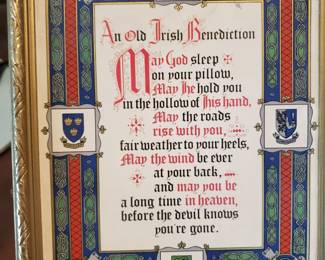 An Old Irish Benediction
May God sleep
on your pillow,
May He hold you
in the hollow of His hand.
May the roads
rise with you,
fair weather to your heels,
May the wind be ever
at your back,
and may you be
a long time in heaven,
before the devil knows
you're gone.